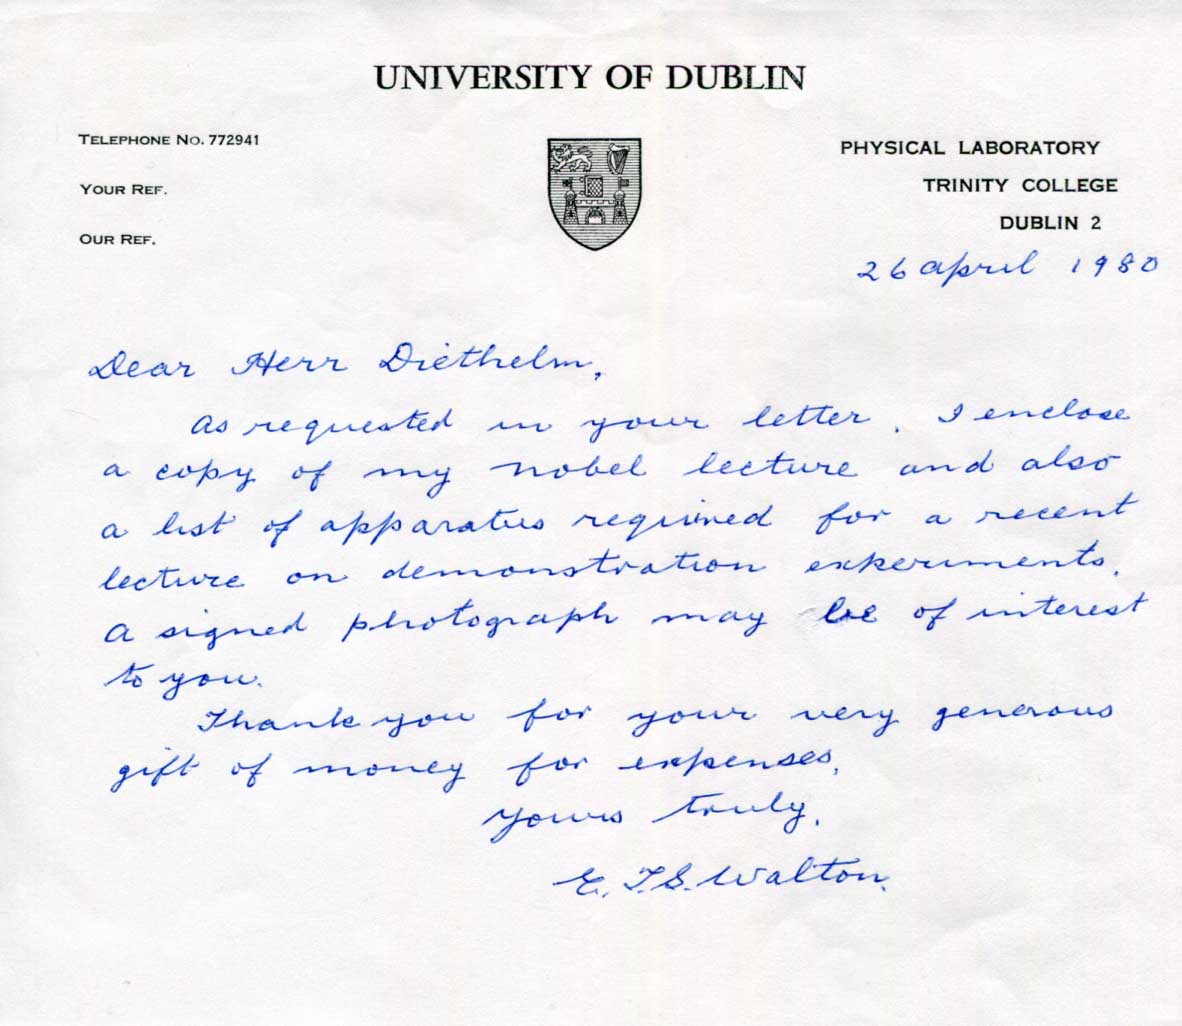 UNIVERSITY OF DUBLIN
TELEPHONE NO. 772941
YOUR REF.
OUR REF.
PHYSICAL LABORATORY
TRINITY COLLEGE
DUBLIN 2
26 April 1980
Dear Herr Diethelm,
As requested in your letter, I enclose
a copy of my Nobel lecture and also
a list of apparatus required for a recent
lecture on demonstration experiments.
A signed photograph may be of interest
to you.
Thank you for your very generous
gift of money for expenses.
Yours truly,
E. T. S. Walton.